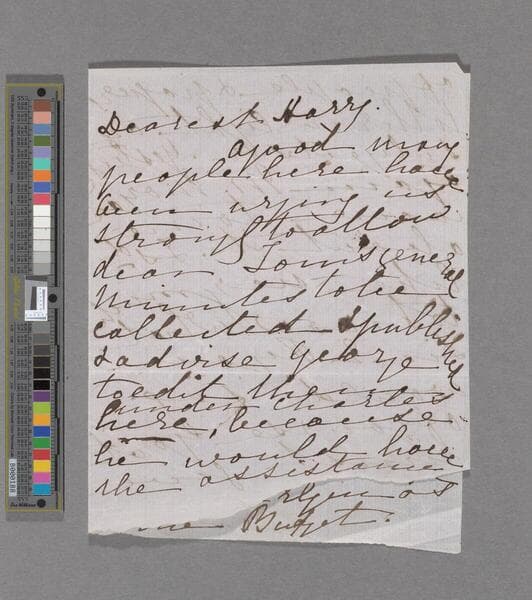 Dearest Harry.
A good many
people here have
been urging us
strongly to allow
dear Tom's general
minutes to be
collected & published
& advise George
to edit them
under Charles
here, because
he would have
the assistance
Budget.